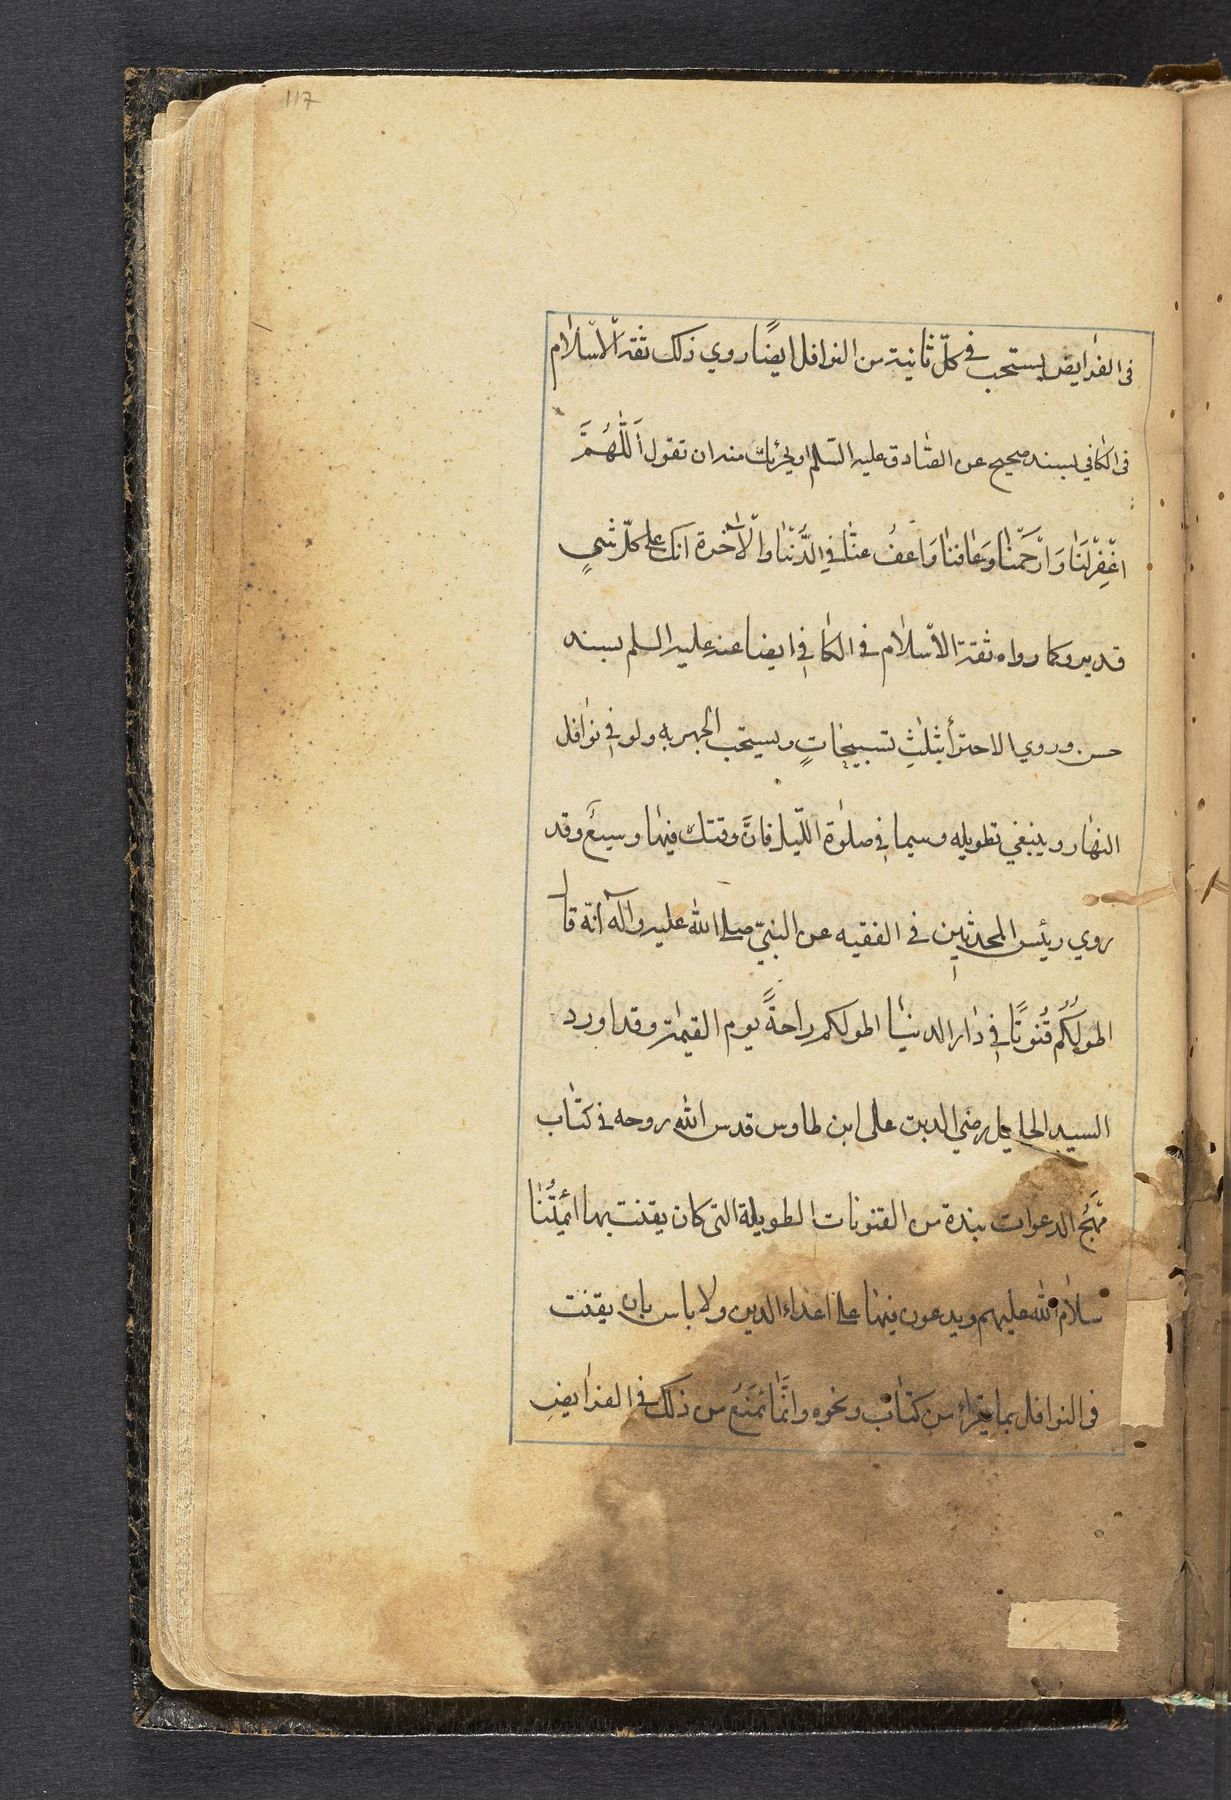 117
فى الفرٰايض يستحب فى كلّ ثانية من النوافل ايضًا روي ذلك ثقة الاسلام
فى الكافي بسند صحيح عن الصّادق عليه السّلم ويجزئك منه ان تقول اَللّٰهُمَّ
اغْفِرْلَنٰا وَارْحَمْنٰا وَعٰافِنٰا وَاعفُ عنّٰا فِي الدُّنْيٰا وَالْاٰخرة انك على كلّ شيءٍ
قدير وكما رواه ثقة الاسلام فى الكافي ايضا عنه عليه السلم بسند
حسن وروي الاجتزأ بثلٰثِ تسبيحٰاتٍ ويستحب الجهر به ولو في نوٰافل
النهٰار وينبغي تطويله وسيما في صلوٰة اللّيل فانَّ وقتك فيهٰا وسيعٌ وقد
روي رئيس المحدثين فى الفقيه عن النبيّ صلى الله عليه وآله أنّه قال
اطولُكُم قُنوتًا في دٰار الدنيٰا اطولكم راحةً يوم القيمٰة وقد اورد
السيد الجليل رضي الدين على ابن طاوس قدس الله روحه فى كتٰاب
مُهَجُ الدعوات نبذة من القنوتات الطويلة التى كان يقنت بها ائمّتُنٰا
سلاٰم الله عليهم ويدعون فيهٰا على اعداء الدين ولا باس بان يقنت
فى النوافل بما يقراء من كتٰاب ونحوه وانّمٰا نَمنَعُ من ذلك فى الفرٰايضِ